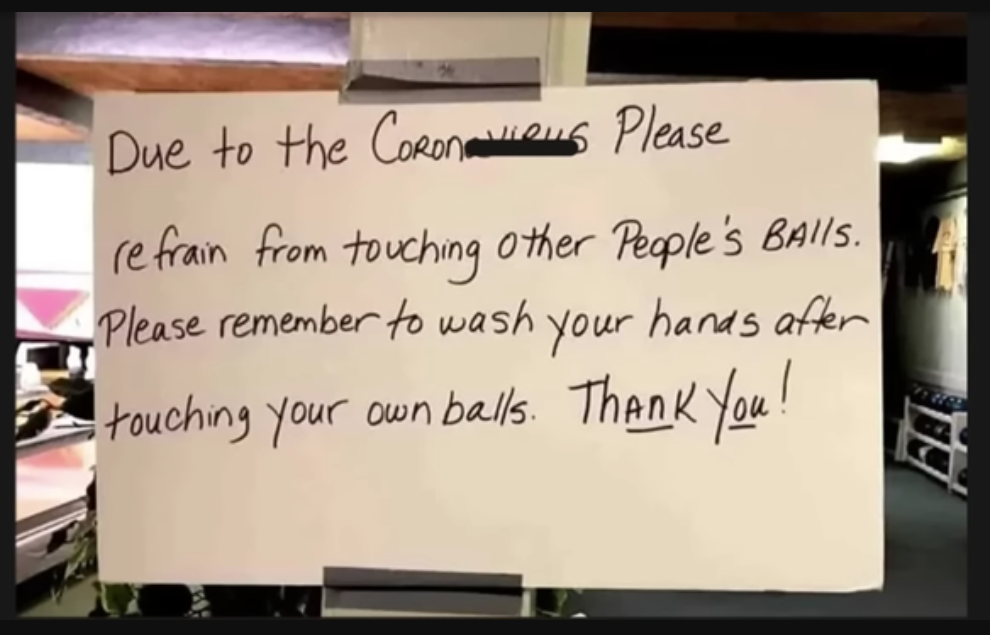 Due to the Coronavirus Please
refrain from touching other People's BAlls.
Please remember to wash your hands after
touching your own balls. ThAnk You!